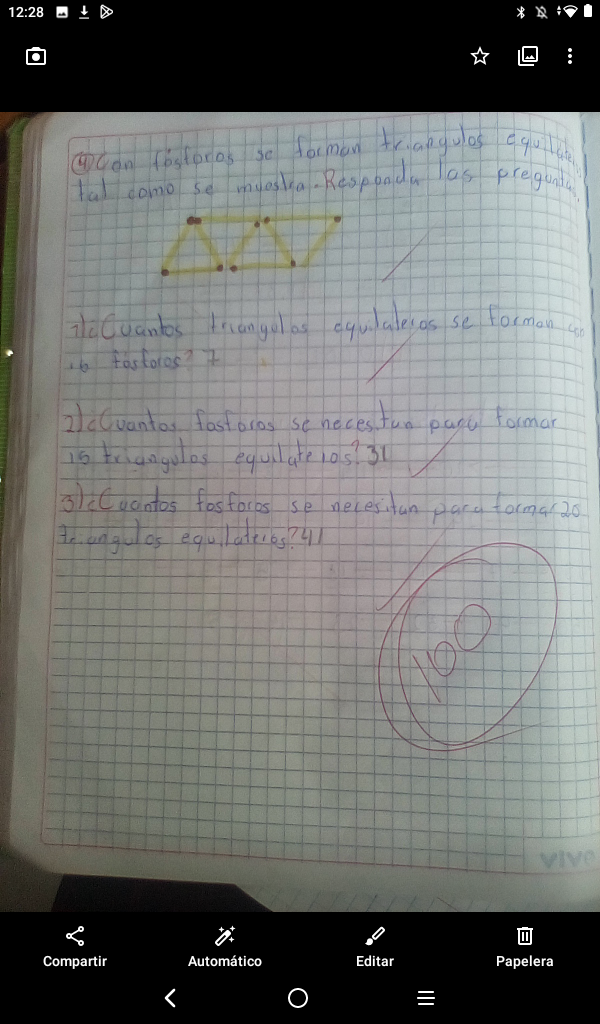 12:28
④ Con fósforos se forman triangulos equilateros
tal como se muestra. Responda las preguntas.
1)¿Cuantos triangulos equilateros se forman con
16 fósforos? 7
2)¿Cuantos fosforos se necesitan para formar
15 triangulos equilateros? 31
3)¿Cuantos fosforos se necesitan para formar 20
triangulos equilateros? 41
100
vivo
Compartir
Automático
Editar
Papelera